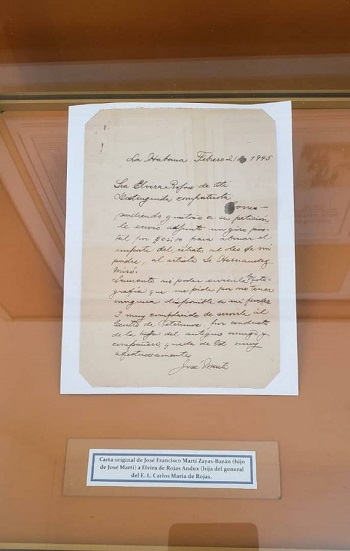 La Habana Febrero 21 1945
Sra Elvira Rojas de
Distinguida compatriota
Corres-
pondiendo gustoso a su petición
le envío adjunto un giro pos-
tal por para abonar el
importe del retrato al oleo de mi
padre, al artista Sr Hernandez
Miró.
Lamento no poder enviarle la foto-
grafia que me pide por no tener
ninguna disponible en mi poder.
Y muy complacido de servirle al
Centro de Veteranos, por conducto
de la hija del antiguo amigo y
compañero, queda de Ud muy
afectuosamente
Jose Martí
Carta original de José Francisco Martí Zayas-Bazán (hijo
de José Martí) a Elvira de Rojas Andux (hija del general
del E. L. Carlos María de Rojas.